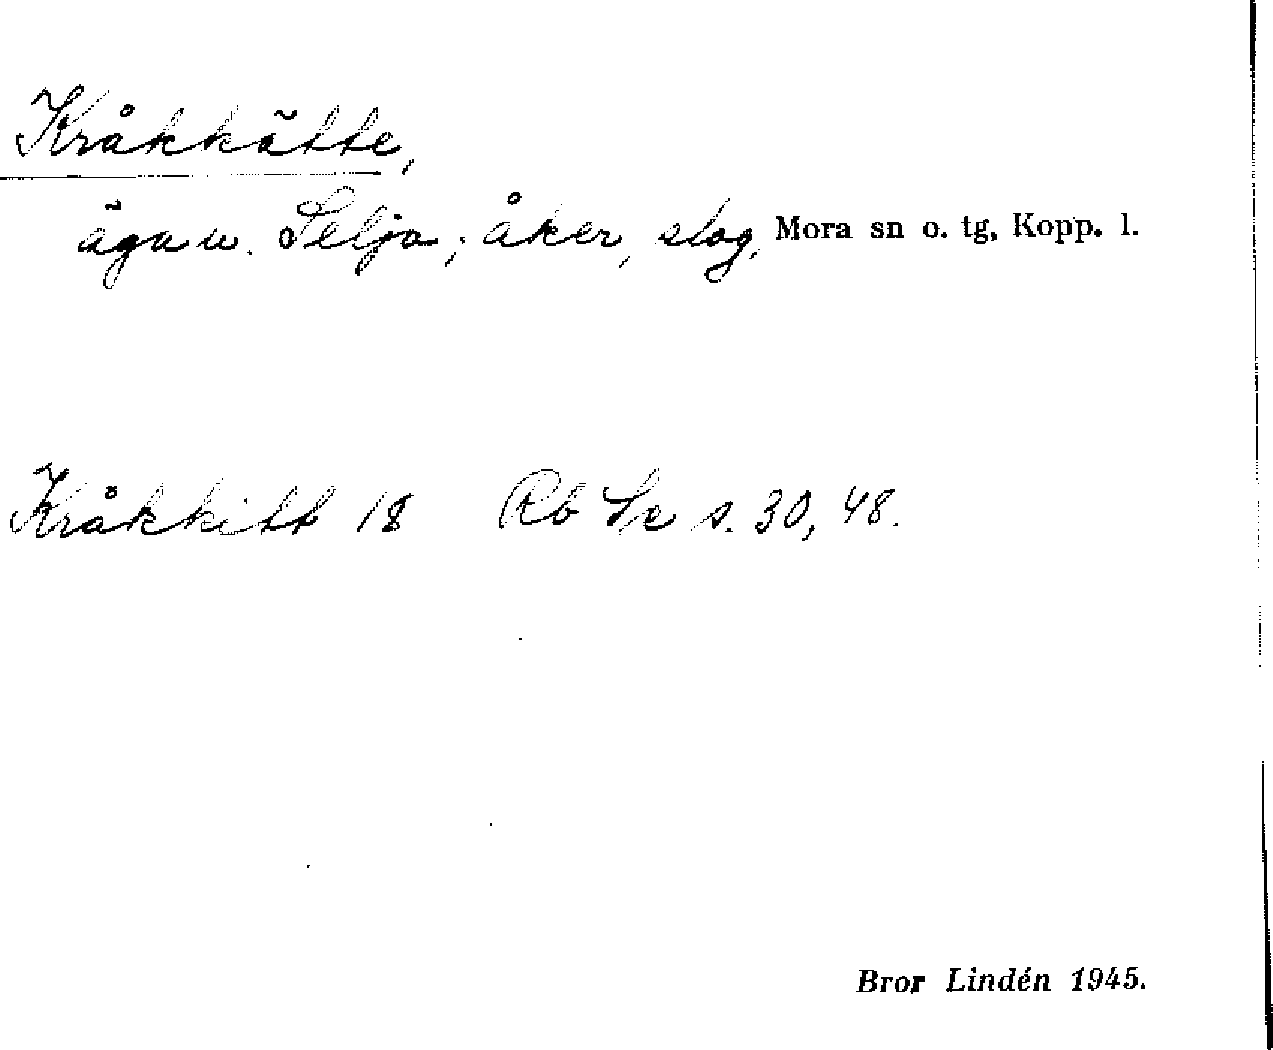 Kråkkätte,
ägau. Selja; åker, slog, Mora sn o. tg, Kopp. l.
Kråkkitt 18 Rb Se s. 30, 48.
Bror Lindén 1945.